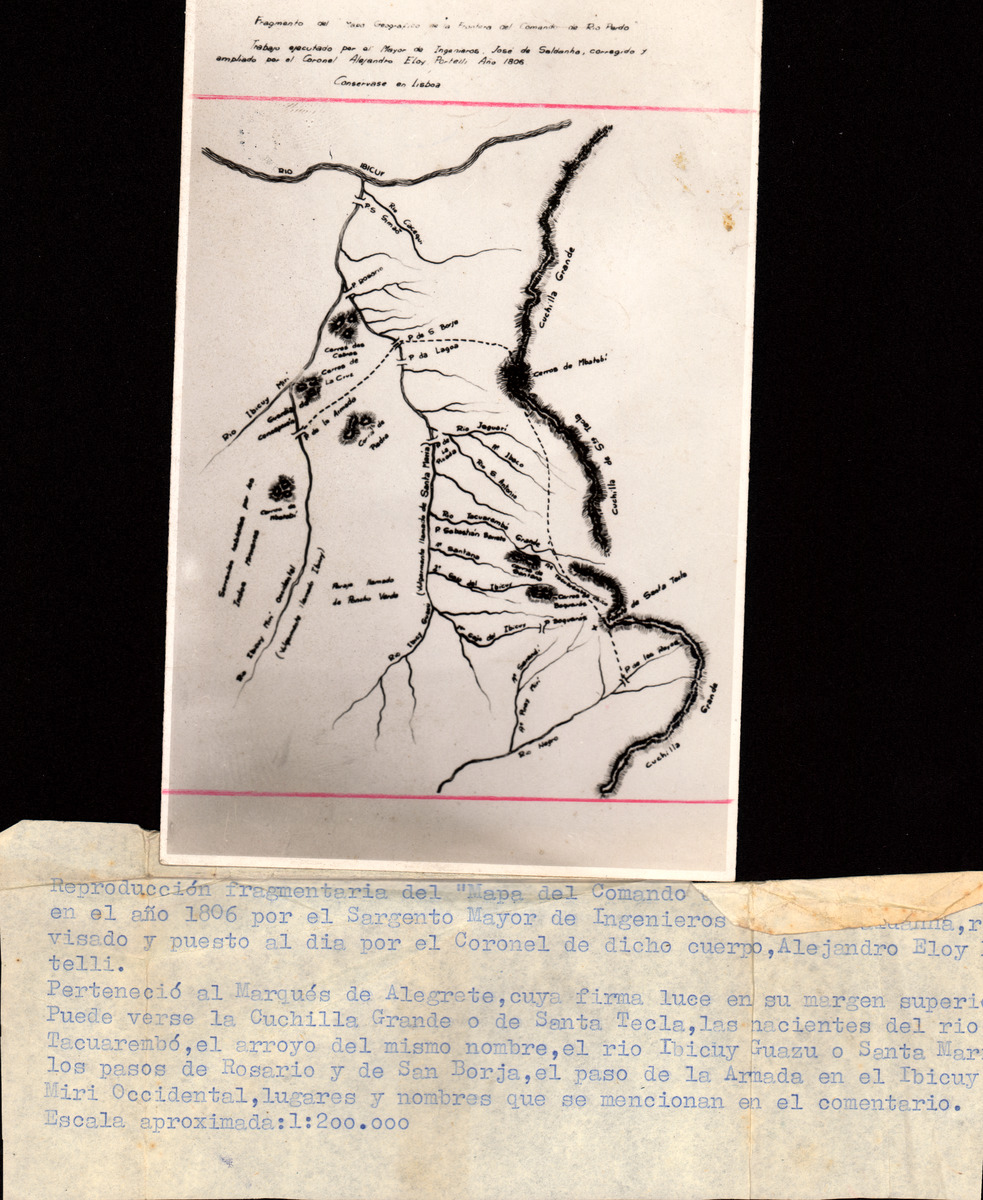 Fragmento del Mapa Geografico de la Frontera del Comando de Rio Pardo
Trabajo ejecutado por el Mayor de Ingenieros, José de Saldanha, corregido y
ampliado por el Coronel Alejandro Eloy Portelli Año 1806
Conservase en Lisboa
RIO IBICUY
P. S. Simáo
Rio Cacequi
P. Rosario
Cuchilla Grande
Cerros das
Cabras
P. de S. Borja
P. da Lagoa
Cerros de
La Cruz
Cerros de Mbatobi
Rio Ibicuy Miri
Guardia de
P. de la Armada
Cerros de
Piedra
Rio Jaguarí
P. de
la
Aº Ibaco
Rio S. Antonio
Cuchilla de Sta Tecla
Cerros
Mbatobi
Rio Ibicuy Miri Occidental
(Vulgarmente llamado Ibicuy)
Paraje llamado
de Poncho Verde
(Vulgarmente llamado de Santa Maria)
Rio Tacuarembó Grande
P. Sebastián Barreto
Santana
del Ibicuy
de Santa Tecla
Rio Ibicuy Guazú
Gajo del Ibicuy
P. Baquerias
P. de los Reyes
Rio Negro
Cuchilla Grande
Reproducción fragmentaria del "Mapa del Comando
en el año 1806 por el Sargento Mayor de Ingenieros
visado y puesto al dia por el Coronel de dicho cuerpo,Alejandro Eloy
telli.
Perteneció al Marqués de Alegrete,cuya firma luce en su margen superi
Puede verse la Cuchilla Grande o de Santa Tecla,las nacientes del rio
Tacuarembó,el arroyo del mismo nombre,el rio Ibicuy Guazu o Santa Mar
los pasos de Rosario y de San Borja,el paso de la Armada en el Ibicuy
Miri Occidental,lugares y nombres que se mencionan en el comentario.
Escala aproximada:1:200.000